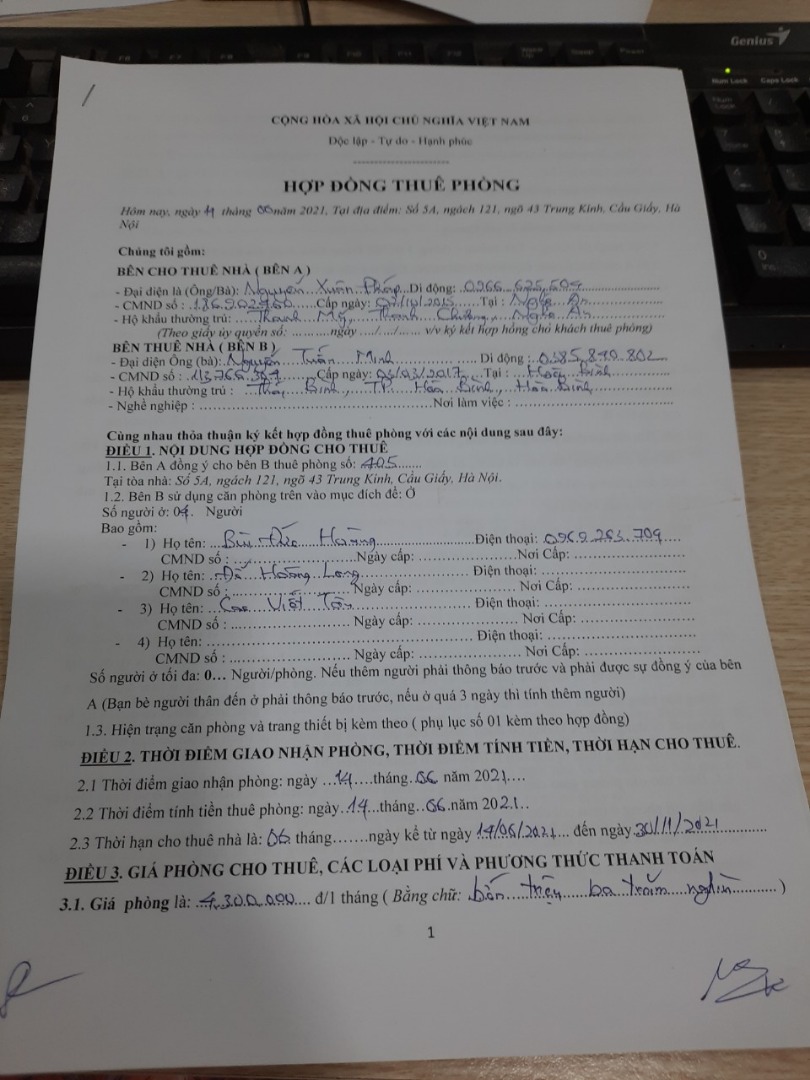 Genius
Num Lock Caps Lock
CỘNG HÒA XÃ HỘI CHỦ NGHĨA VIỆT NAM
Độc lập - Tự do - Hạnh phúc
HỢP ĐỒNG THUÊ PHÒNG
Hôm nay, ngày 11 tháng 06 năm 2021, Tại địa điểm: Số 5A, ngách 121, ngõ 43 Trung Kính, Cầu Giấy, Hà
Nội
Chúng tôi gồm:
BÊN CHO THUÊ NHÀ ( BÊN A )
- Đại diện là (Ông/Bà): Nguyễn Xuân Pháp Di động: 0966.625.609
- CMND số : 186902960 Cấp ngày: /2015 Tại : Nghệ An
- Hộ khẩu thường trú: Thanh Mỹ, Thanh Chương, Nghệ An
(Theo giấy ủy quyền số: ...........ngày ..../..../...... v/v ký kết hợp hồng cho khách thuê phòng)
BÊN THUÊ NHÀ ( BÊN B )
- Đại diện Ông (bà): Nguyễn Tuấn Minh Di động : 0385.890.802
- CMND số : 113766 Cấp ngày: 03/03/2017 Tại : Hòa Bình
- Hộ khẩu thường trú : Thái Bình, TP. Hòa Bình, Hòa Bình
- Nghề nghiệp : ..........................................Nơi làm việc : ..............................
Cùng nhau thỏa thuận ký kết hợp đồng thuê phòng với các nội dung sau đây:
ĐIỀU 1. NỘI DUNG HỢP ĐỒNG CHO THUÊ
1.1. Bên A đồng ý cho bên B thuê phòng số: 405
Tại tòa nhà: Số 5A, ngách 121, ngõ 43 Trung Kính, Cầu Giấy, Hà Nội.
1.2. Bên B sử dụng căn phòng trên vào mục đích để: Ở
Số người ở: 04. Người
Bao gồm:
- 1) Họ tên: Bùi Đức Hoàng Điện thoại: 0969.763.709
CMND số : ........................Ngày cấp: ....................Nơi Cấp: ....................
- 2) Họ tên: Đỗ Hoàng Long Điện thoại: ..........................
CMND số : ........................ Ngày cấp: .................... Nơi Cấp: ....................
- 3) Họ tên: Cao Viết Điện thoại: ..........................
CMND số : ........................ Ngày cấp: .................... Nơi Cấp: ....................
- 4) Họ tên: .................................................. Điện thoại: ..........................
CMND số : ........................ Ngày cấp: .................... Nơi Cấp: ....................
Số người ở tối đa: 0… Người/phòng. Nếu thêm người phải thông báo trước và phải được sự đồng ý của bên
A (Bạn bè người thân đến ở phải thông báo trước, nếu ở quá 3 ngày thì tính thêm người)
1.3. Hiện trạng căn phòng và trang thiết bị kèm theo ( phụ lục số 01 kèm theo hợp đồng)
ĐIỀU 2. THỜI ĐIỂM GIAO NHẬN PHÒNG, THỜI ĐIỂM TÍNH TIỀN, THỜI HẠN CHO THUÊ.
2.1 Thời điểm giao nhận phòng: ngày ...14....tháng.06 năm 2021....
2.2 Thời điểm tính tiền thuê phòng: ngày..14...tháng..06.năm 2021..
2.3 Thời hạn cho thuê nhà là: 06 tháng…….ngày kể từ ngày 14/06/2021.... đến ngày 30/11/2021
ĐIỀU 3. GIÁ PHÒNG CHO THUÊ, CÁC LOẠI PHÍ VÀ PHƯƠNG THỨC THANH TOÁN
3.1. Giá phòng là: 4.300.000.... đ/1 tháng ( Bằng chữ: bốn triệu ba trăm nghìn............)
1